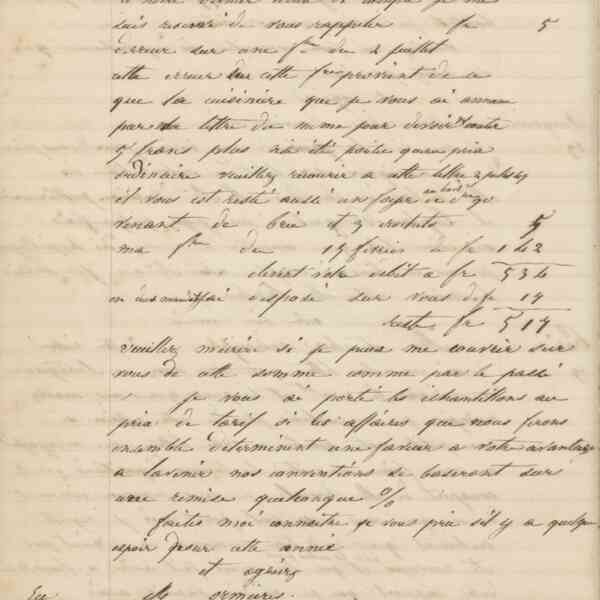 suis réservé de vous rappeler fr 5
erreur sur une fre du 2 juillet
cette erreur sur cette fre provient de ce
que la cuisinière que je vous ai annoncé
par la lettre du meme jour devoir couter
5 frans plus n'a été portée qu'au prix
ordinaire veuillez recourir a cette lettre
il vous est resté aussi un foyer
venant de brie et 3
ma fre du 15 février de fr 142
devait votre débit a fr 534
disposé sur vous de fr 17
reste fr 517
veuillez m'écrire si je puis me couvrir sur
vous de cette somme comme par le passé
je vous ai porté les échantillons au
prix de tarif si les affaires que nous ferons
ensemble déterminent une faveur a votre avantage
a l'avenir nos conventions se baseront sur
une remise quelconque %
faites moi connaitre je vous prie s'il y a quelque
espoir pour cette année
et agréez